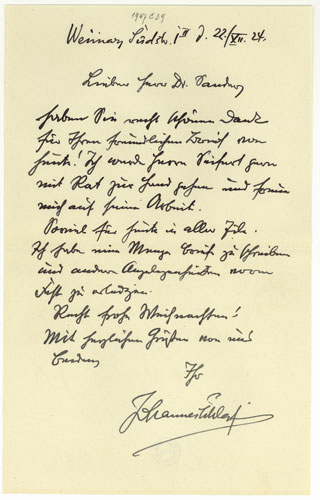 1967 C 39
Weimar, Südstr. 1 II d. 22/XII. 24.
Lieber Herr Dr. Sanders,
haben Sie recht schönen Dank
für Ihren freundlichen Brief von
heute! Ich werde Herrn Seifert gern
mit Rat zur Hand gehen und freue
mich auf seine Arbeit.
Soviel für heute in aller Eile.
Ich habe eine Menge Briefe zu schreiben
und andere Angelegenheiten vorm
Fest zu erledigen.
Recht frohe Weihnachten!
Mit herzlichen Grüßen von uns
beiden
Ihr
Johannes Schlaf